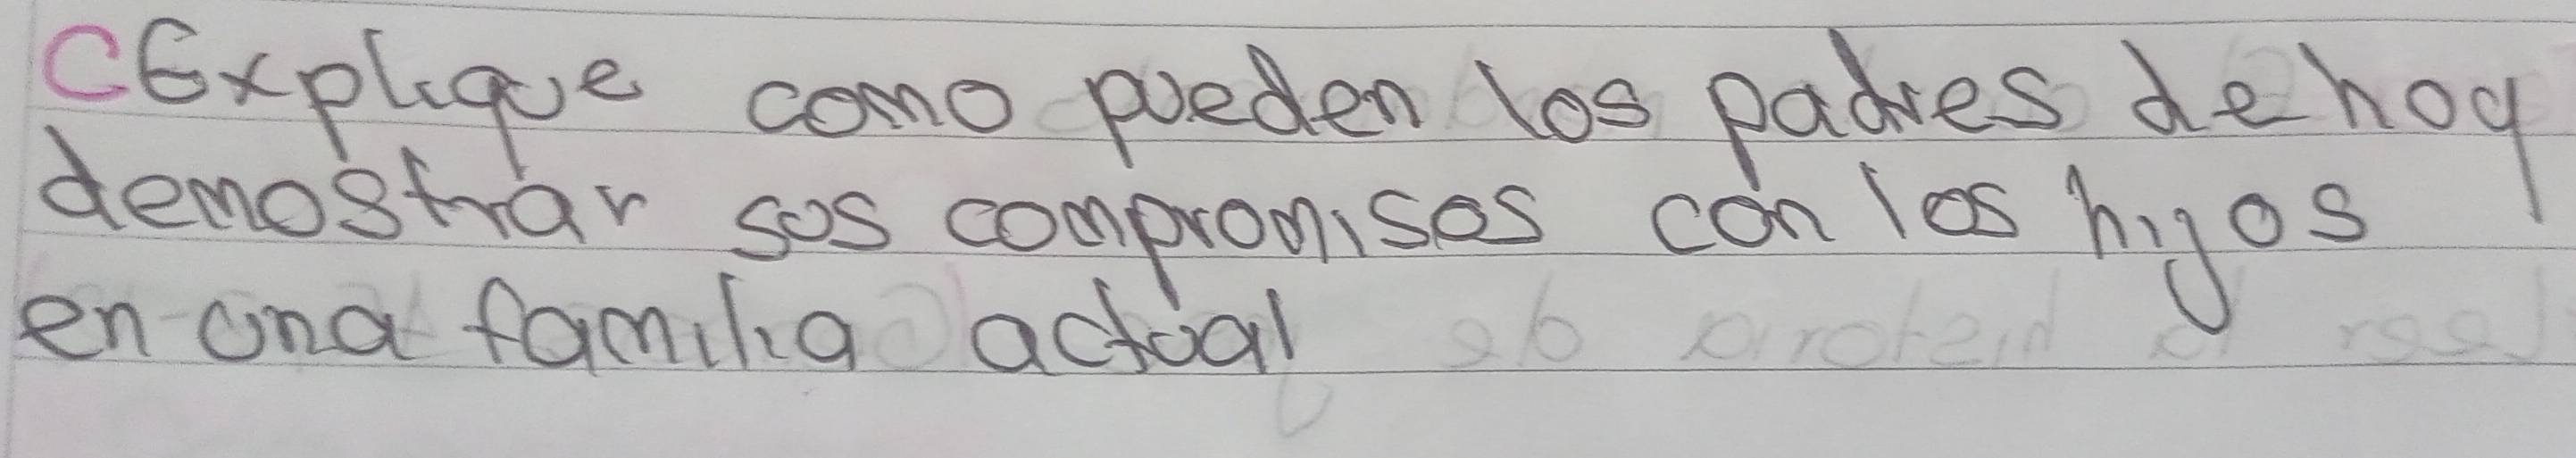 C Explique como pueden los padres de hoy
demostrar sus compromisos con los hijos
en una familia actual